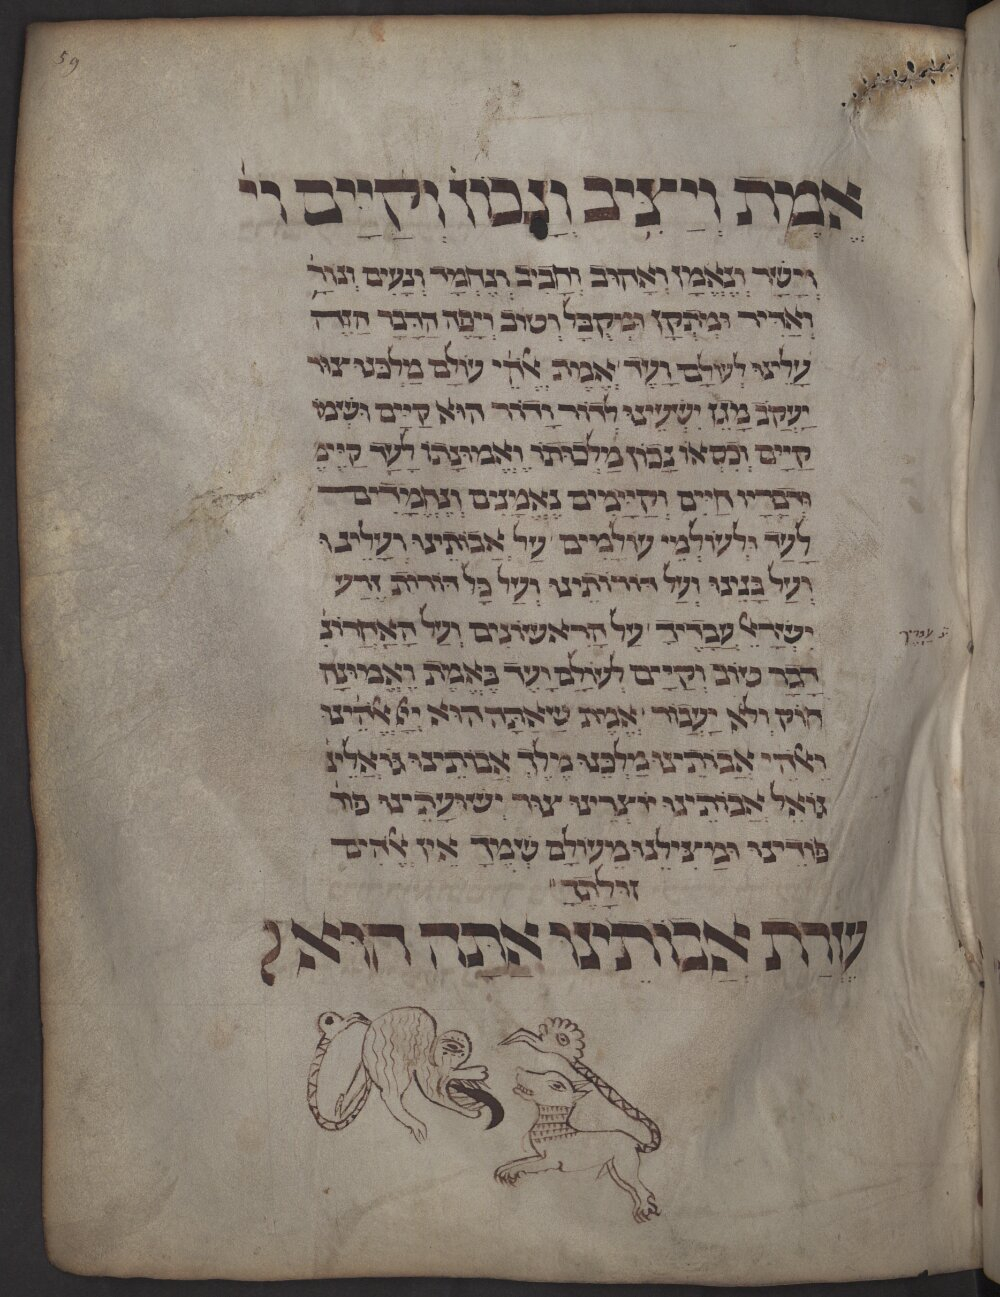 59
אֱמֶת וְיַצִּיב וְנָכוֹן וְקַיָּים וי
וְיָשָׁר וְנֶאֱמָן וְאָהוּב וְחָבִיב וְנֶחְמָד וְנָעִים וְנוֹרָ
וְאַדִּיר וּמְתֻקָּן וּמְקֻבָּל וְטוֹב וְיָפֶה הַדָּבָר הַזֶּה
עָלֵינוּ לְעוֹלָם וָעֶד אֱמֶת אֱלֹהֵי עוֹלָם מַלְכֵּנוּ צוּר
יַעֲקֹב מָגֵן יִשְׁעֵינוּ לְדוֹר וָדוֹר הוּא קַיָּים וּשְׁמוֹ
קַיָּים וְכִסְאוֹ נָכוֹן מַלְכוּתוֹ וֶאֱמוּנָתוֹ לָעַד קַיֶּימֶ
וּדְבָרָיו חַיִּים וְקַיָּימִים נֶאֱמָנִים וְנֶחֱמָדִים
לָעַד וּלְעוֹלְמֵי עוֹלָמִים עַל אֲבוֹתֵינוּ וְעָלֵינוּ
וְעַל בָּנֵינוּ וְעַל דּוֹרוֹתֵינוּ וְעַל כָּל דּוֹרוֹת זֶרַע
יִשְׂרָאֵל עֲבָדֶיךָ עַל הָרִאשׁוֹנִים וְעַל הָאַחֲרוֹנִ
דָּבָר טוֹב וְקַיָּים לְעוֹלָם וָעֶד בֶּאֱמֶת וֶאֱמוּנָה
חוֹק וְלֹא יַעֲבוֹר אֱמֶת שָׁאַתָּה הוּא יְיָ אֱלֹהֵינוּ
וֵאלֹהֵי אֲבוֹתֵינוּ מַלְכֵּנוּ מֶלֶךְ אֲבוֹתֵינוּ גּוֹאֲלֵינוּ
גּוֹאֵל אֲבוֹתֵינוּ יוֹצְרֵינוּ צוּר יְשׁוּעָתֵינוּ פוֹד
פּוֹדֵינוּ וּמַצִּילֵנוּ מֵעוֹלָם שְׁמֶךָ אֵין אֱלֹהִים
זוּלָתֶךָ
עֶזְרַת אֲבוֹתֵינוּ אַתָּה הוּא